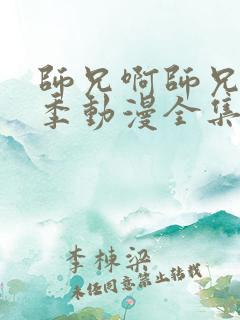 師兄啊師兄
季動漫全集
李棟梁
未経同意禁止转载